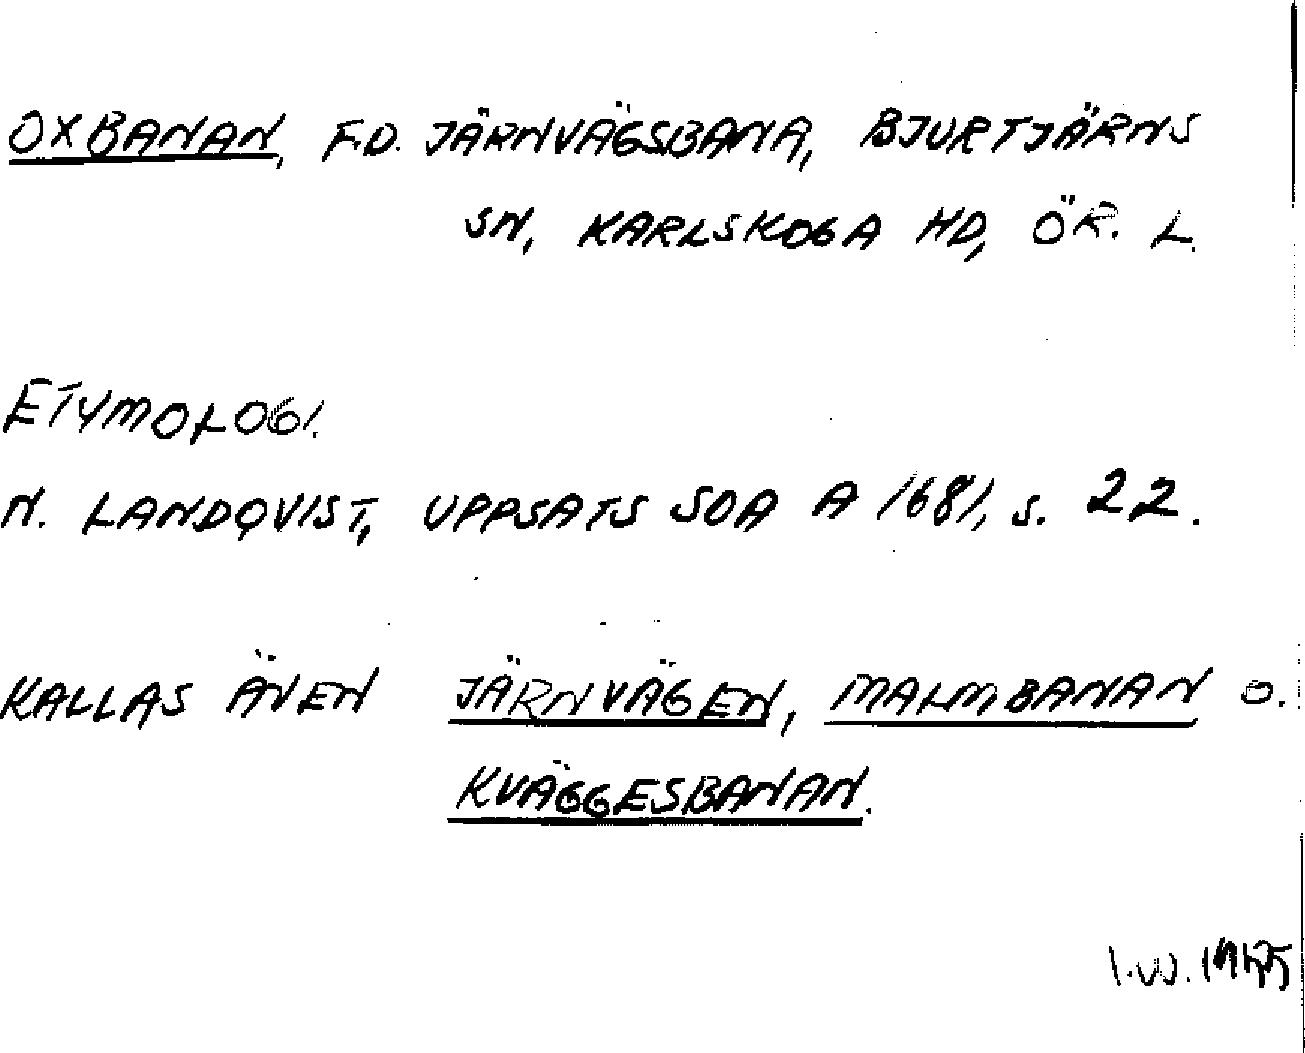 OXBANAN, F.D. JÄRNVÄGSBANA, BJURTJÄRNS
SN, KARLSKOGA HD, ÖR. L.
ETYMOLOGI.
N. LANDQVIST, UPPSATS SOA A 1681, S. 22.
KALLAS ÄVEN JÄRNVÄGEN, MALMBANAN O.
KVÄGGESBANAN.
I.W.